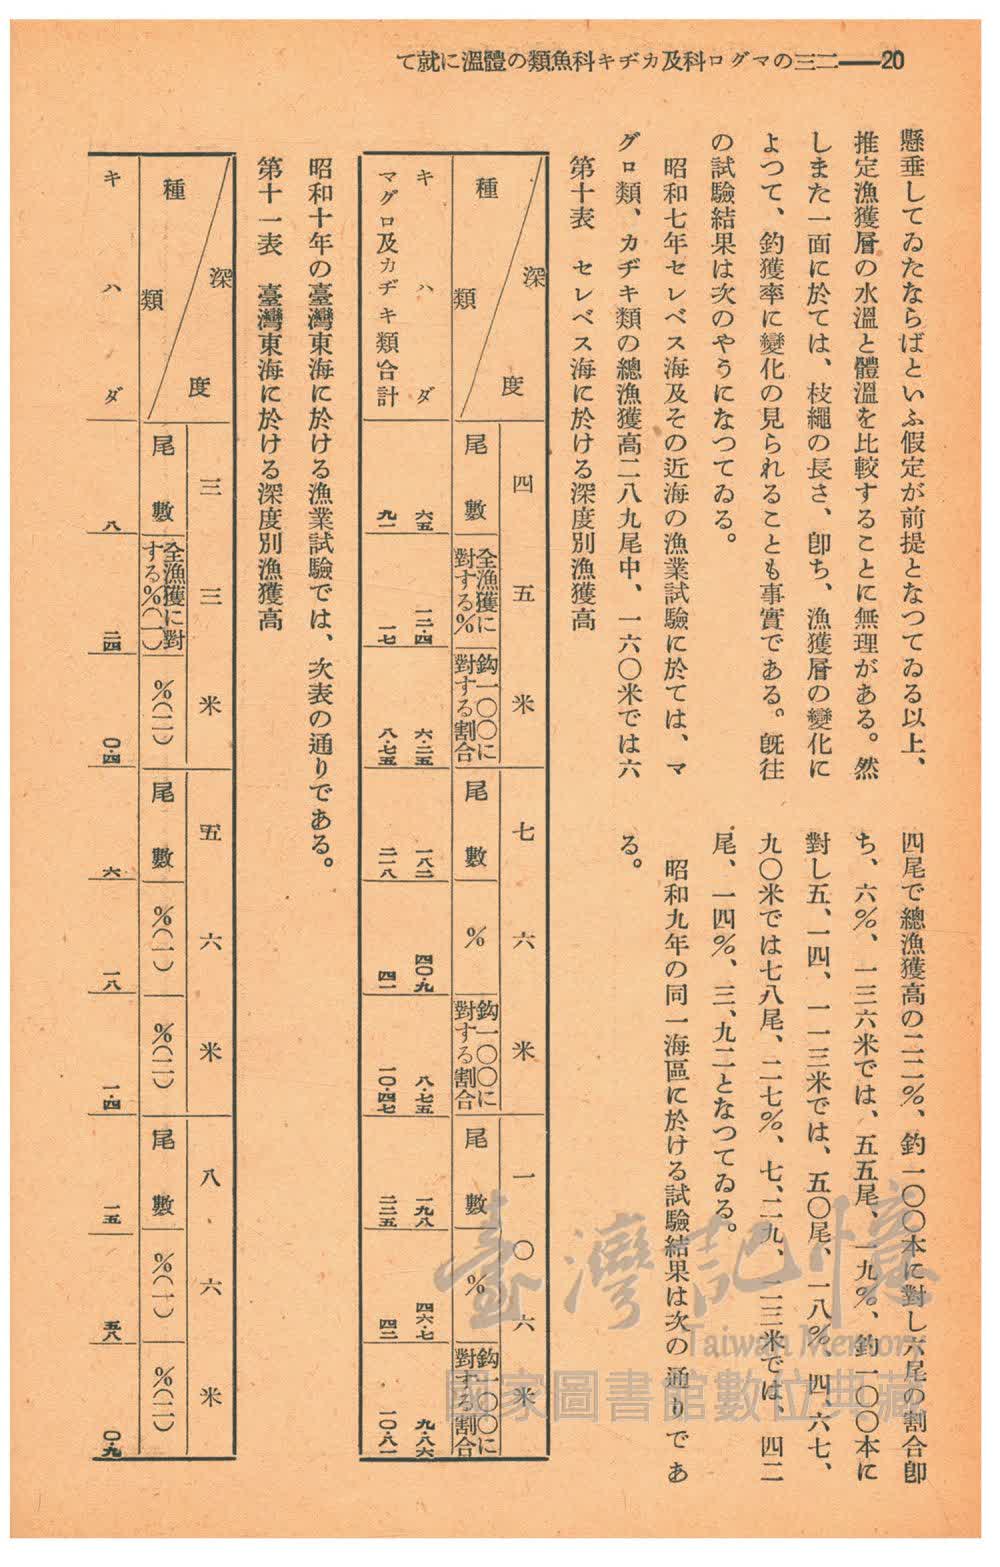 20——二三のマグロ科及カヂキ科魚類の體溫に就て
懸垂してゐたならばといふ假定が前提となつてゐる以上、
推定漁獲層の水溫と體溫を比較することに無理がある。然
しまた一面に於ては、枝繩の長さ、卽ち、漁獲層の變化に
よつて、釣獲率に變化の見られることも事實である。旣往
の試驗結果は次のやうになつてゐる。
昭和七年セレベス海及その近海の漁業試驗に於ては、マ
グロ類、カヂキ類の總漁獲高二八九尾中、一六〇米では六
四尾で總漁獲高の二二%、釣一〇〇本に對し六尾の割合卽
ち、六%、一三六米では、五五尾、一九%、釣一〇〇本に
對し五、一四、一一三米では、五〇尾、一八%、四、六七、
九〇米では七八尾、二七%、七、二九、一二三米では、四二
尾、一四%、三、九二となつてゐる。
昭和九年の同一海區に於ける試驗結果は次の通りであ
る。
第十表 セレベス海に於ける深度別漁獲高
深度
種類
四五米
七六米
一〇六米
尾數
全漁獲に對する%
鈎一〇〇に對する割合
尾數
%
鈎一〇〇に對する割合
尾數
%
鈎一〇〇に對する割合
キハダ 六五 一二・四 六・二五 一八二 四〇・九 八・七五 一九八 四六・七 九・八六
マグロ及カヂキ類合計 九一 一七 八・七五 二一八 四一 一〇・四七 二二五 四二 一〇・八一
昭和十年の臺灣東海に於ける漁業試驗では、次表の通りである。
第十一表 臺灣東海に於ける深度別漁獲高
深度
種類
三三米
五六米
八六米
尾數
全漁獲に對する%(一)
%(二)
尾數
%(一)
%(二)
尾數
%(一)
%(二)
キハダ 八 二四 〇・四 六 一八 一・四 一五 五八 〇・九
臺灣記憶
Taiwan Memory
國家圖書館數位典藏